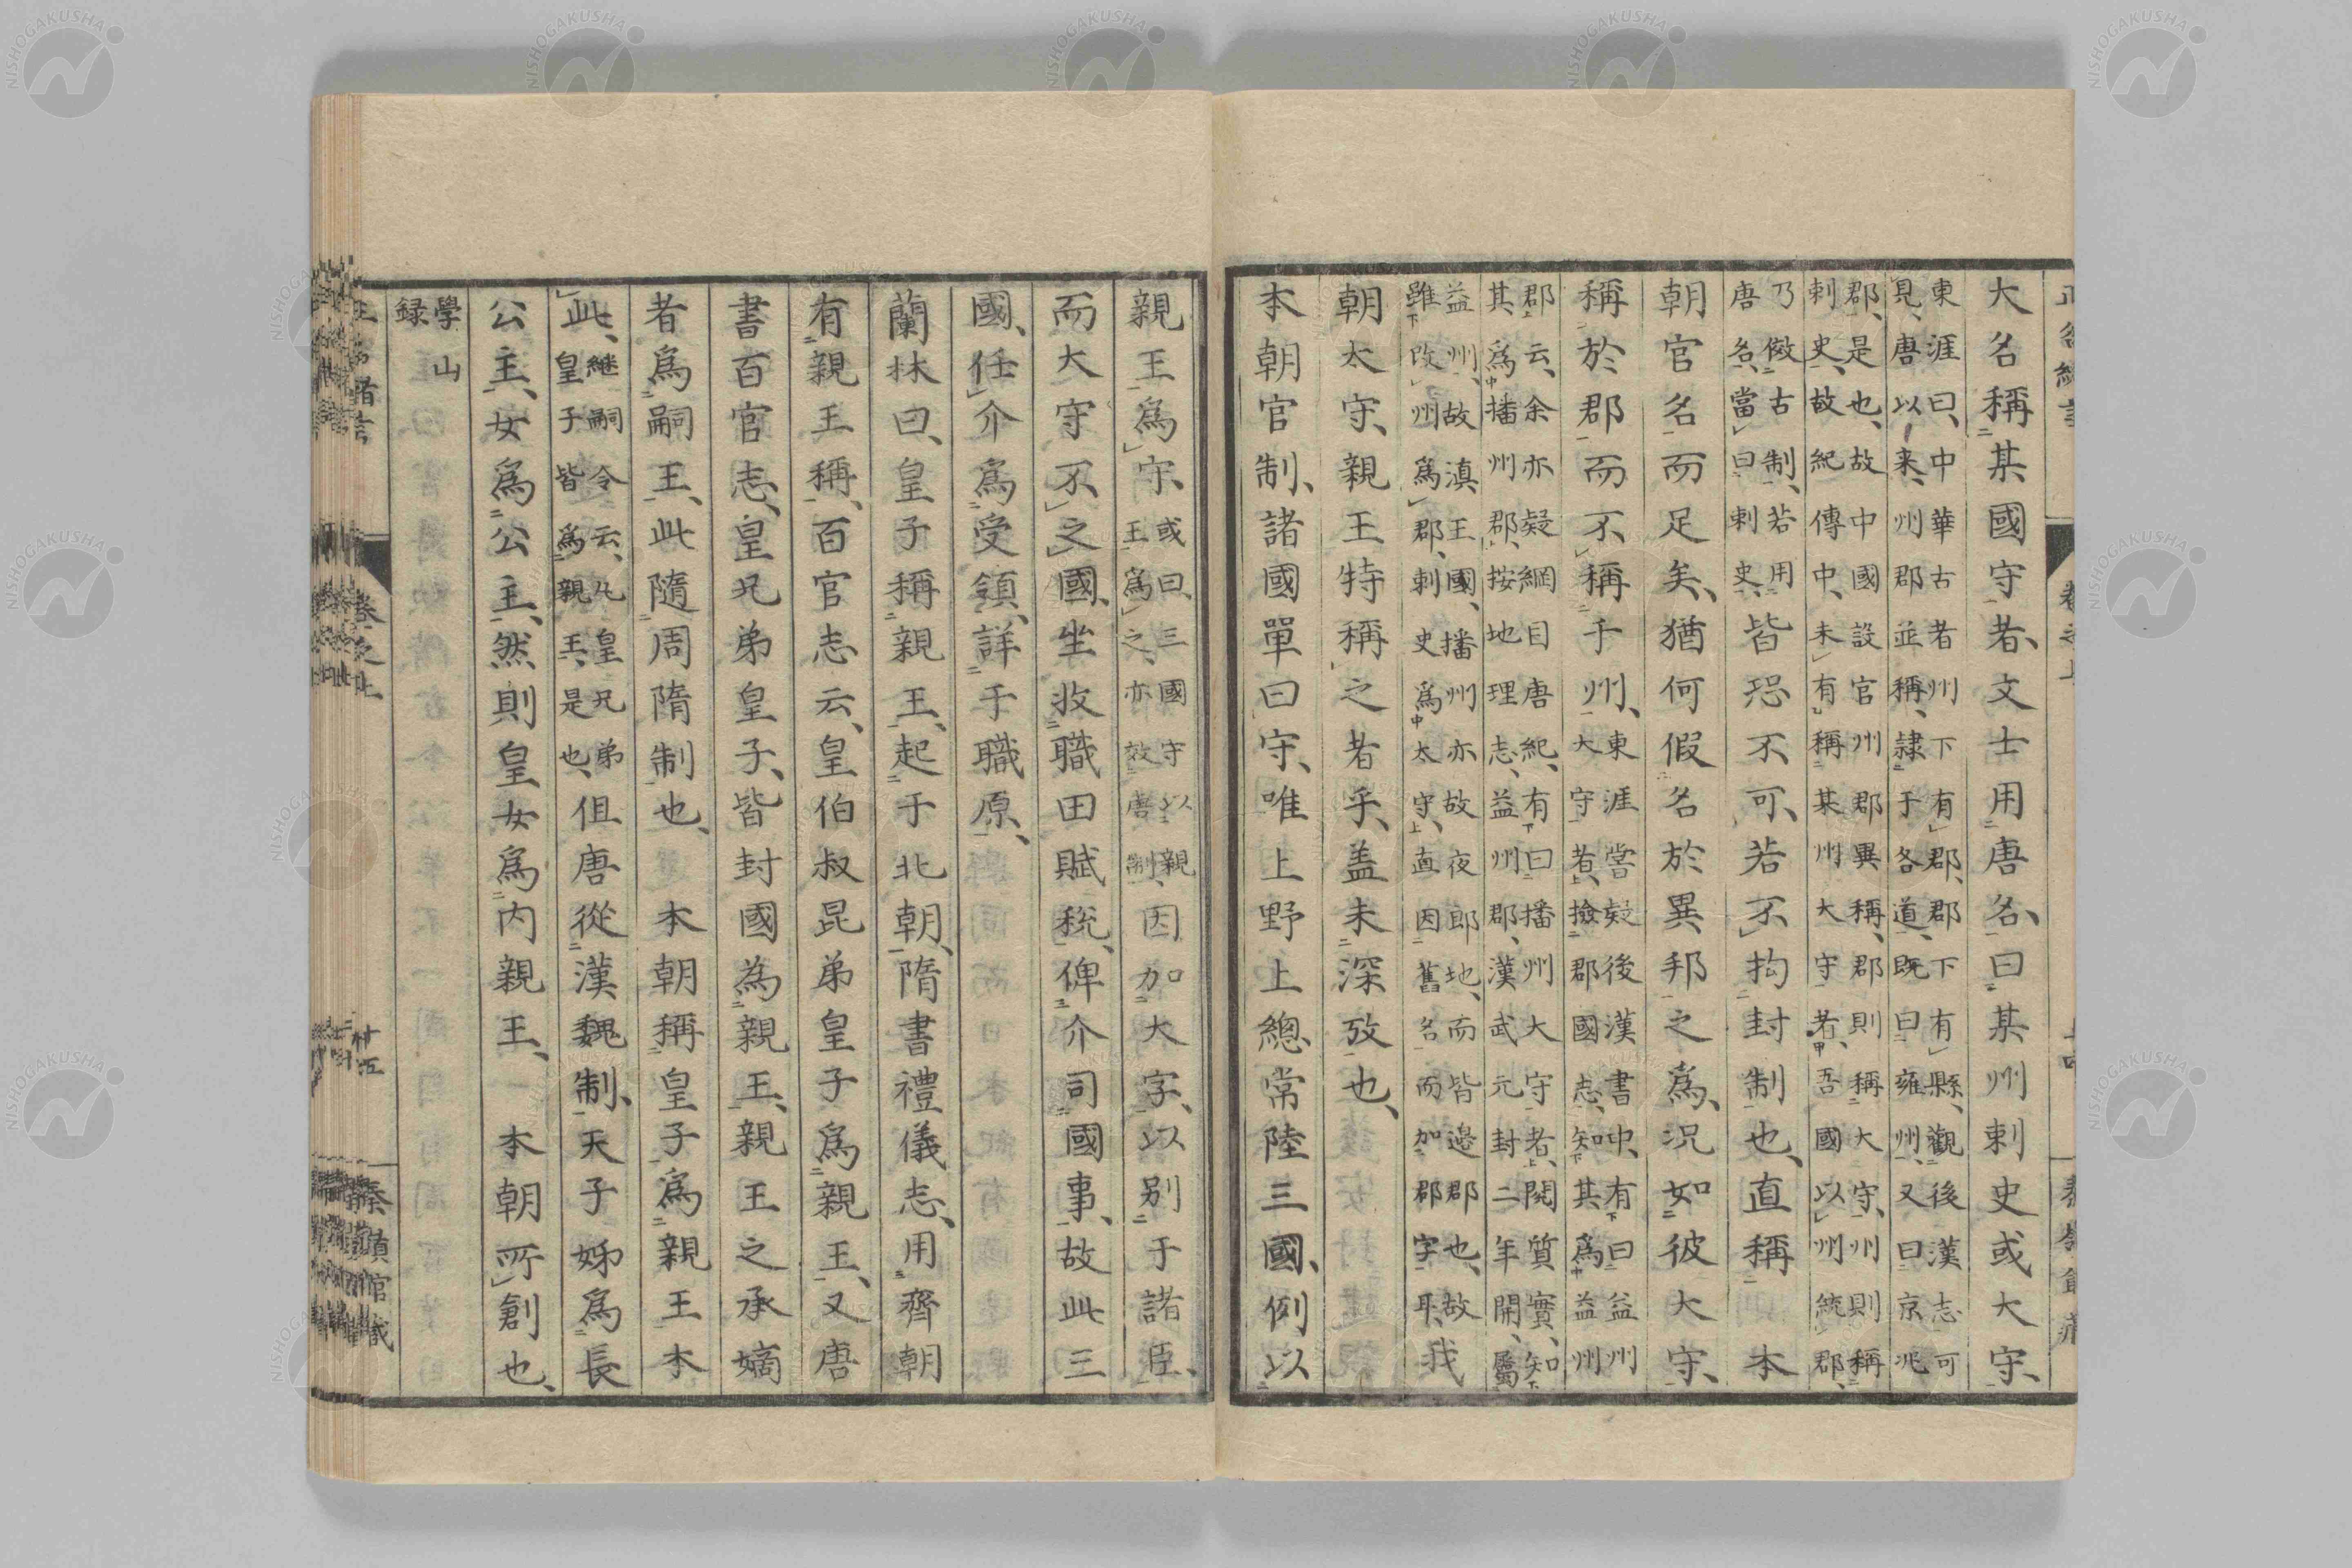 大名稱某國守者、文士用唐名、曰某州剌史或大守、
東涯曰、中華古者州下有郡、郡下有縣、觀後漢志可
見、唐以來、州郡並稱、隷于各道、既曰雍州、又曰京兆
郡、是也、故中國設官州郡異稱、郡則稱大守、州則稱
剌史、故紀傳中、未有稱某州大守者、吾國以州統郡、
乃倣古制、若用
唐名、當曰剌史、
皆恐不可、若不拘封制也、直稱 本
朝官名而足矣、猶何假名於異邦之爲、况如彼大守、
稱於郡而不稱于州、
東涯甞攷後漢書中、有曰益州
大守者、撿郡國志、知其爲益州
郡云、余亦疑綱目唐紀、有曰播州大守者、閱質實、知
其爲播州郡、按地理志、益州郡、漢武元封二年開、屬
益州、故滇王國、播州亦故夜郎地、而皆邊郡也、故
雖改州爲郡、剌史爲太守、直因舊名而加郡字耳、
我
朝太守、親王特稱之者乎、盖未深攷也、
本朝官制、諸國單曰守、唯上野上總常陸三國、例以
親王爲守、
或曰、三國守以親
王爲之、亦效唐制、
因加大字、以别于諸臣、
而大守不之國、坐收職田賦税、俾介司國事、故此三
國、任介爲受領、詳于職原、
蘭林曰、皇子稱親王、起于北朝、隋書禮儀志、用齊朝
有親王稱、百官志云、皇伯叔昆弟皇子爲親王、又唐
書百官志、皇兄弟皇子、皆封國為親王、親王之承嫡
者爲嗣王、此隨周隋制也、 本朝稱皇子爲親王本
此、
継嗣令云、凡皇兄弟
皇子皆爲親王、是也、
但唐從漢魏制、天子姊爲長
公主、女爲公主、然則皇女爲内親王、 本朝所創也、
學山
録
卷之上
廿五